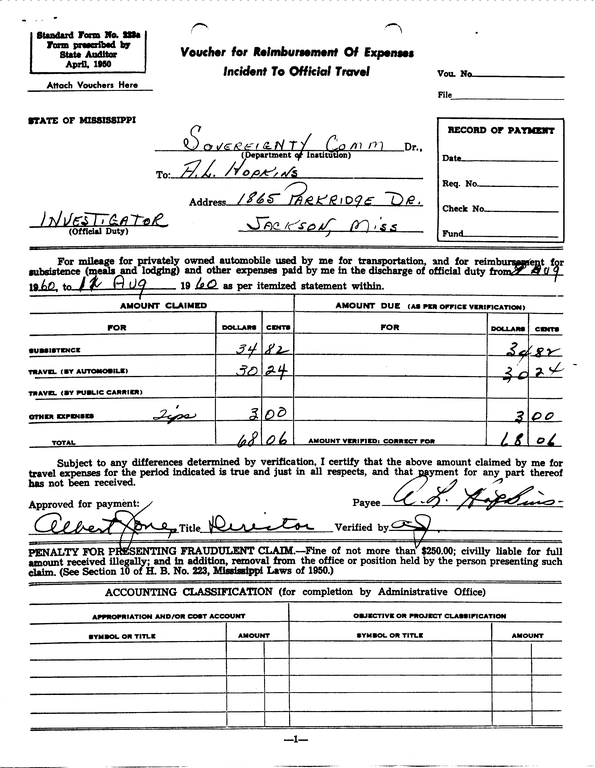 Standard Form No. 223a
Form prescribed by
State Auditor
April, 1950
Attach Vouchers Here
Voucher for Reimbursement Of Expenses
Incident To Official Travel
Vou. No.
File
STATE OF MISSISSIPPI
SOVEREIGNTY COMM Dr.,
(Department of Institution)
To: A.L. HOPKINS
Address 1865 PARKRIDGE DR.
INVESTIGATOR JACKSON, MISS
(Official Duty)
RECORD OF PAYMENT
Date
Req. No.
Check No.
Fund
For mileage for privately owned automobile used by me for transportation, and for reimbursement for
subsistence (meals and lodging) and other expenses paid by me in the discharge of official duty from Aug
1960, to 12 Aug 1960 as per itemized statement within.
AMOUNT CLAIMED AMOUNT DUE (AS PER OFFICE VERIFICATION)
FOR DOLLARS CENTS FOR DOLLARS CENTS
SUBSISTENCE 34 82 34 82
TRAVEL (BY AUTOMOBILE) 30 24 30 24
TRAVEL (BY PUBLIC CARRIER)
OTHER EXPENSES Tips 3 00 3 00
TOTAL 68 06 AMOUNT VERIFIED: CORRECT FOR 68 06
Subject to any differences determined by verification, I certify that the above amount claimed by me for
travel expenses for the period indicated is true and just in all respects, and that payment for any part thereof
has not been received.
Approved for payment: Payee A. L. Hopkins
Albert Jones Title Director Verified by AJ.
PENALTY FOR PRESENTING FRAUDULENT CLAIM.—Fine of not more than $250.00; civilly liable for full
amount received illegally; and in addition, removal from the office or position held by the person presenting such
claim. (See Section 10 of H. B. No. 223, Mississippi Laws of 1950.)
ACCOUNTING CLASSIFICATION (for completion by Administrative Office)
APPROPRIATION AND/OR COST ACCOUNT OBJECTIVE OR PROJECT CLASSIFICATION
SYMBOL OR TITLE AMOUNT SYMBOL OR TITLE AMOUNT
—1—